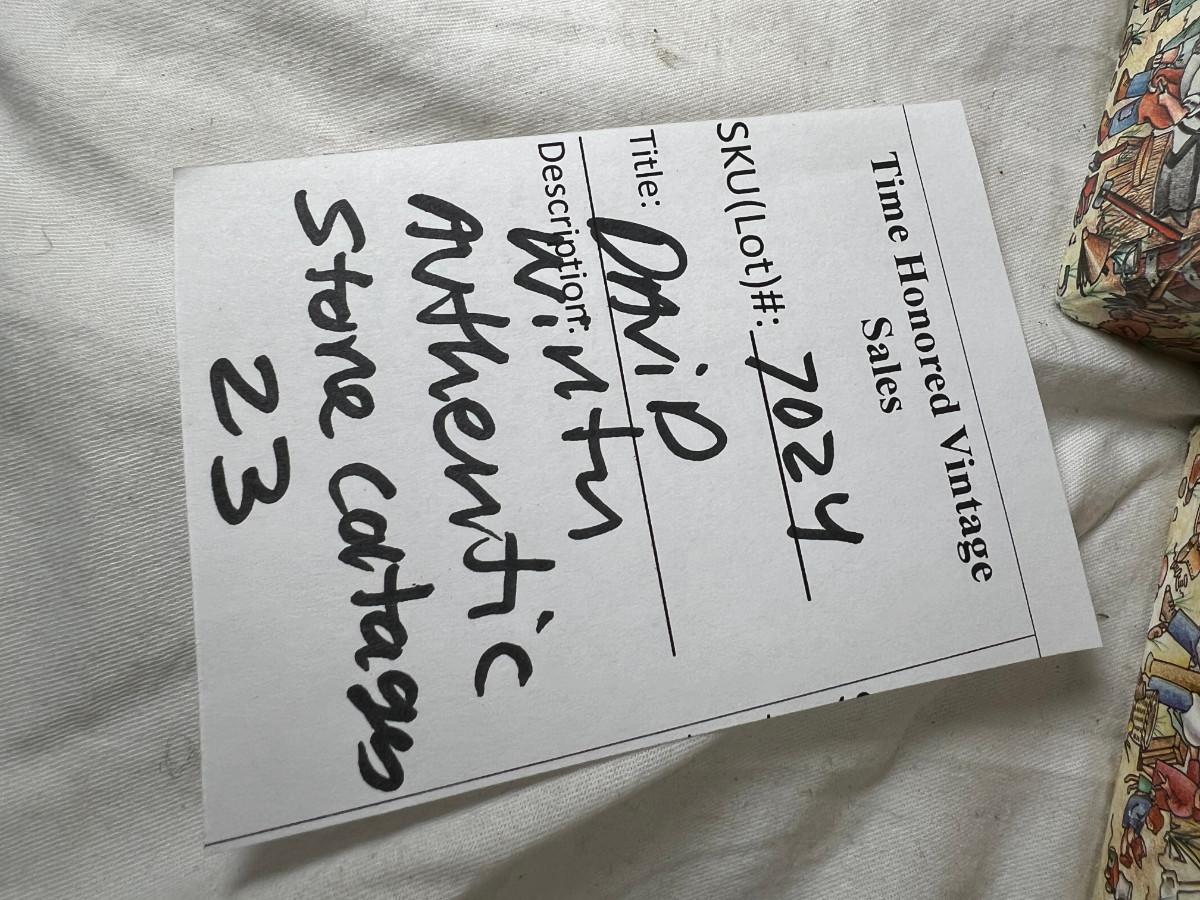 Time Honored Vintage
Sales
SKU(Lot)#: 7024
Title: DAviD
Description: Wintr
Authentic
Stone Cottages
23